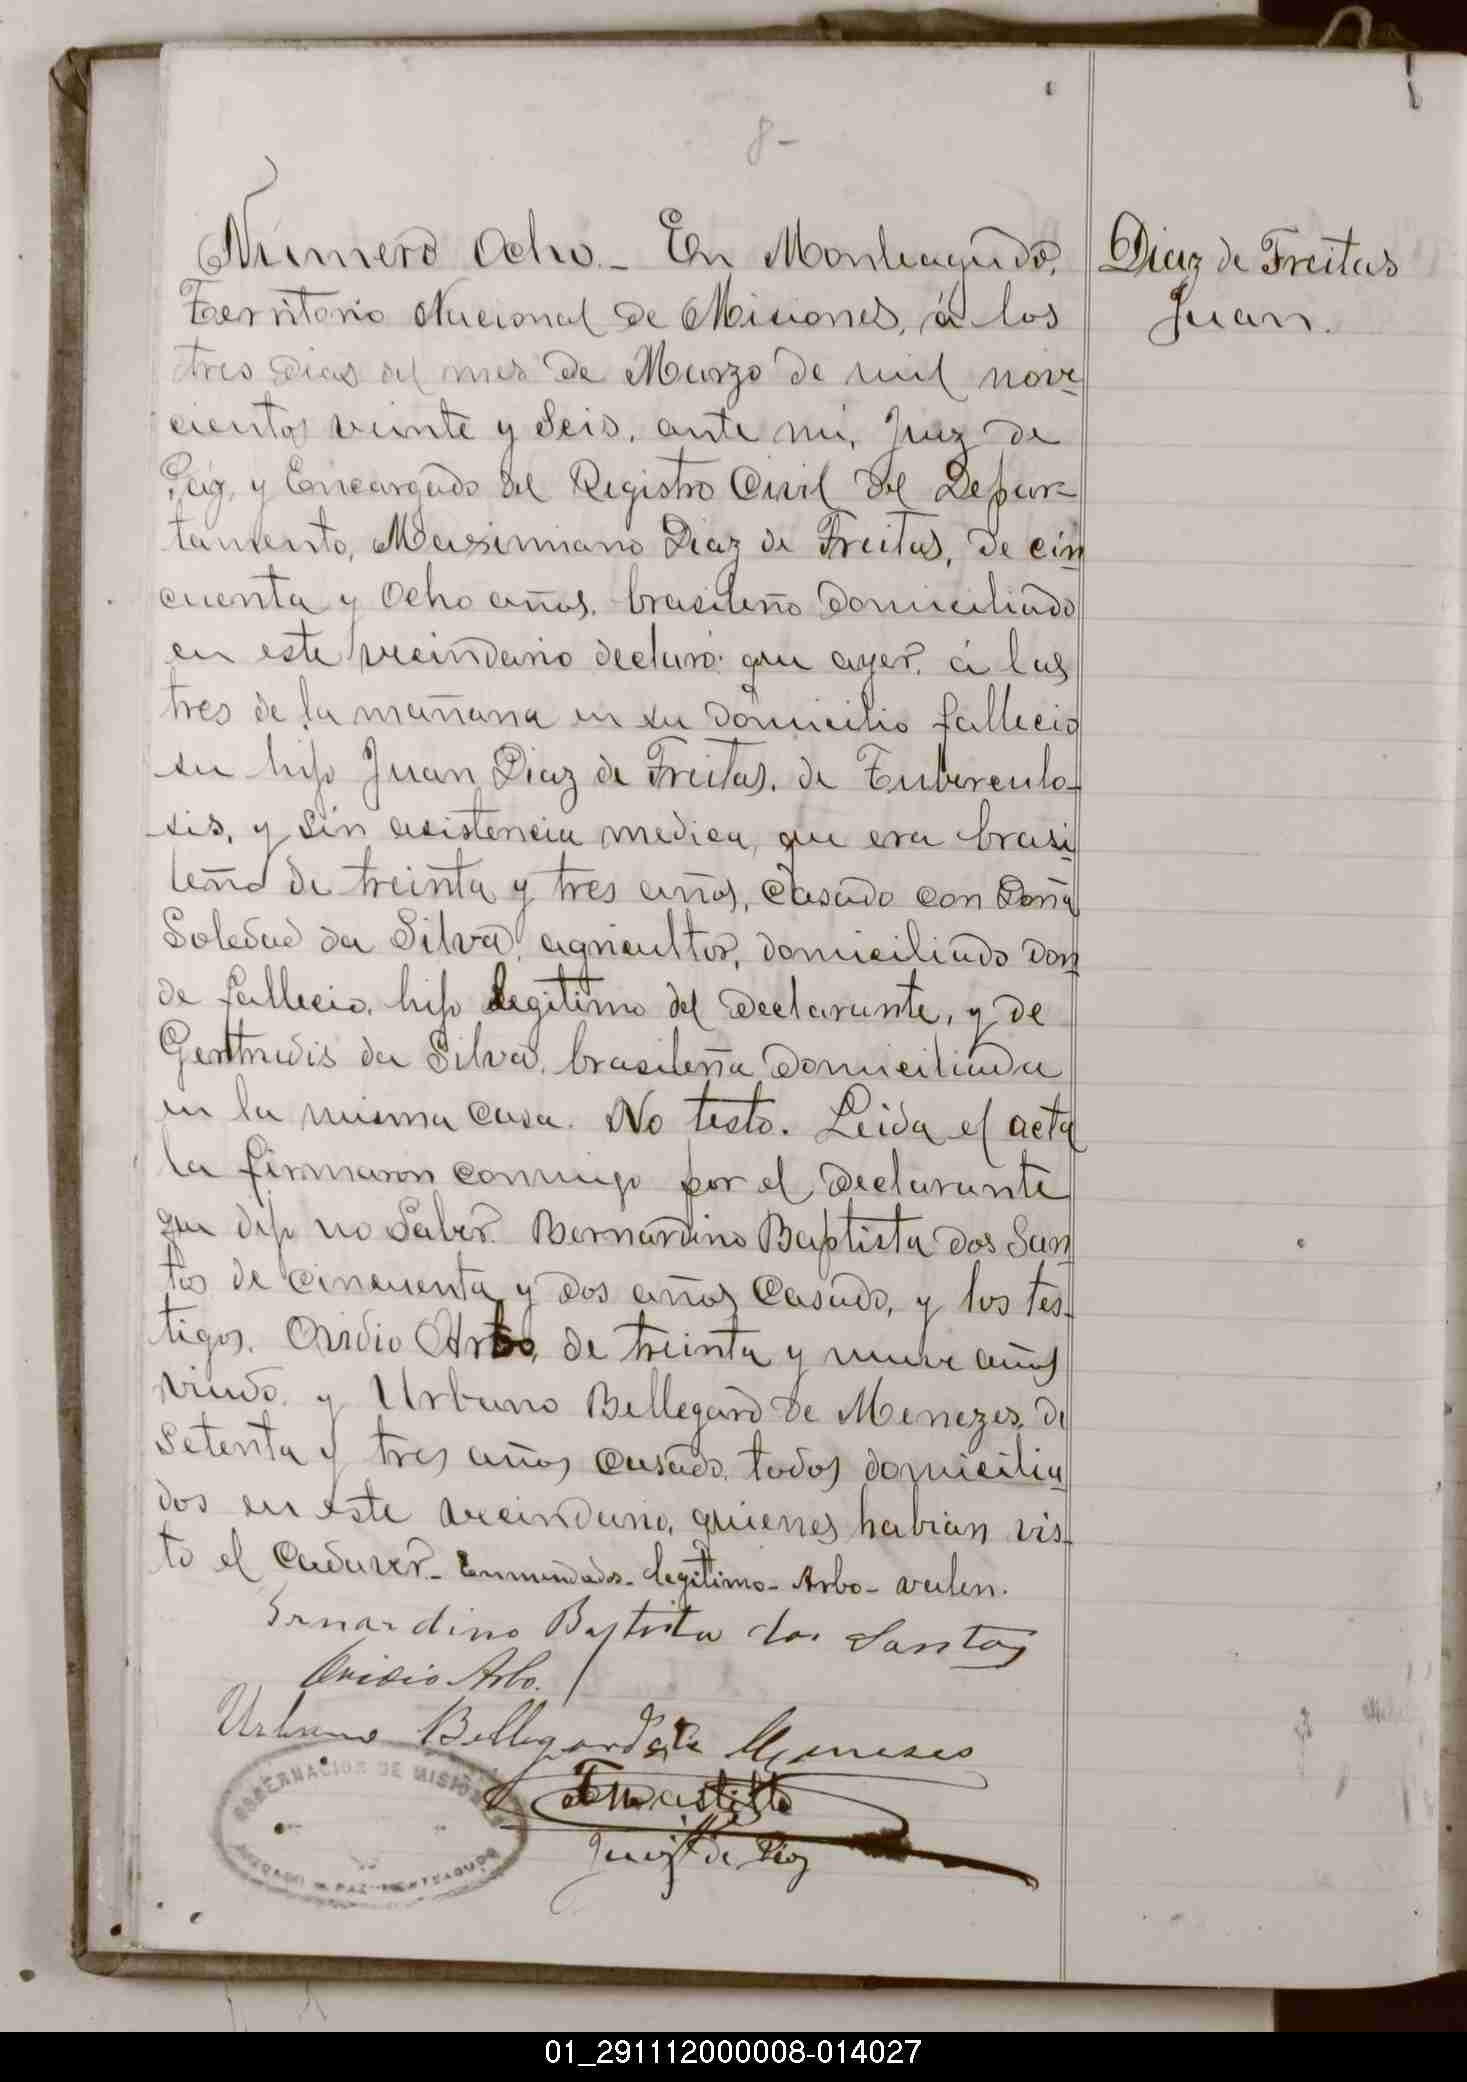 8-
Número Ocho.- En Monteagudo,
Territorio Nacional de Misiones, á los
tres dias del mes de Marzo de mil nove-
cientos veinte y seis, ante mi, Juez de
Páz, y Encargado del Registro Civil del Depar-
tamento, Maximiano Diaz de Freitas, de cin-
cuenta y ocho años, brasileño domiciliado
en este vecindario declaró: que ayer, á las
tres de la mañana en su domicilio fallecio
su hijo Juan Diaz de Freitas, de Tuberculo-
sis, y sin asistencia medica, que era brasi-
leño de treinta y tres años, casado con Doña
Soledad da Silva, agricultor, domiciliado don-
de fallecio, hijo legitimo del declarante, y de
Gertrudis da Silva, brasileña domiciliada
en la misma casa. No testo. Leida el acta
la firmaron conmigo por el declarante
que dijo no saber Bernardino Baptista dos San-
tos de cincuenta y dos años casado, y los tes-
tigos, Ovidio Arbo, de treinta y nueve años
viudo, y Urbano Bellegard de Menezes, de
setenta y tres años casado, todos domicilia-
dos en este vecindario, quienes habian vis-
to el cadaver.- Enmendados- legitimo- Arbo- valen.
Diaz de Freitas
Juan.
Bernardino Baptista dos Santos
Ovidio Arbo.
Urbano Bellegard de Meneses
Juez de Paz
GOBERNACION DE MISIONES
JUZGADO DE PAZ-MONTEAGUDO
01_291112000008-014027